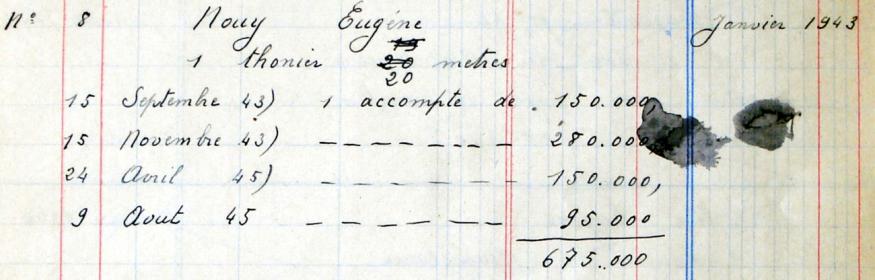 N° 8 Nouy Eugène Janvier 1943
1 thonier 20 metres
15 Septembre 43) 1 accompte de 150.000,
15 Novembre 43) — — — — — — 280.000,
24 Avril 45) — — — — — 150.000,
9 Aout 45 — — — — — 95.000
675.000